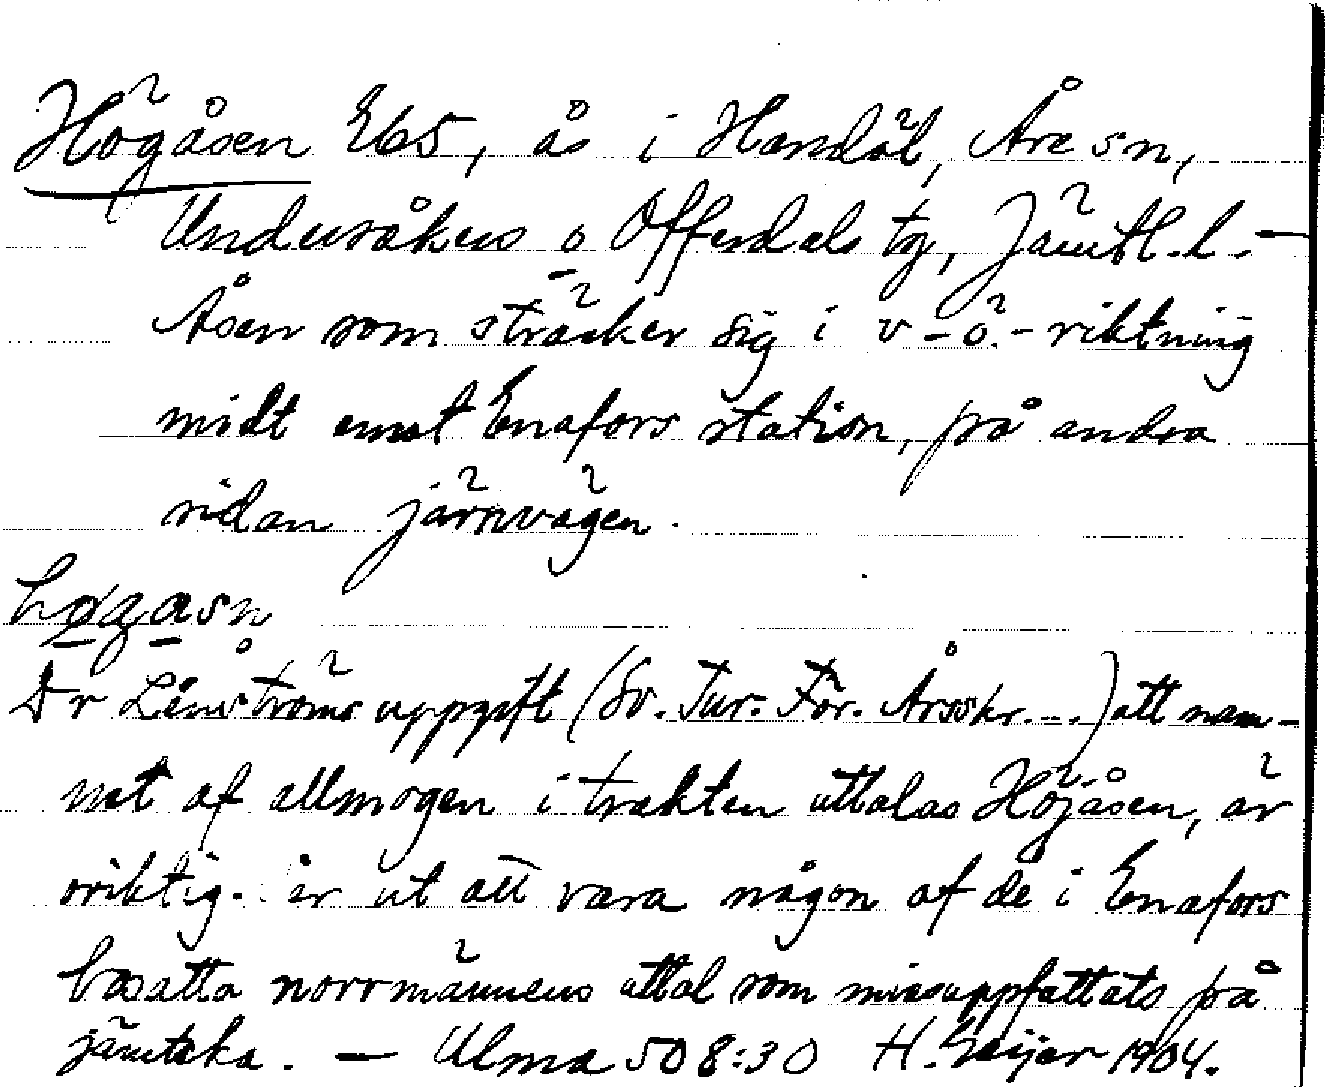 Högåsen E65, ås i Handöl, Åre sn,
Undersåkers o Offerdals tg, Jämtl. l. —
Åsen som sträcker sig i v - ö. - riktning
midt emot Enafors station, på andra
sidan järnvägen.
Dr uppgift (Sv. Tur. För. Årsskr....) att nam-
net af allmogen i trakten uttalas Höjåsen, är
oriktig. ut att vara någon af de i Enafors
bosatta norrmännens uttal som missuppfattats på
jämtska. — Ulma 508:30 H. Geijer 1904.